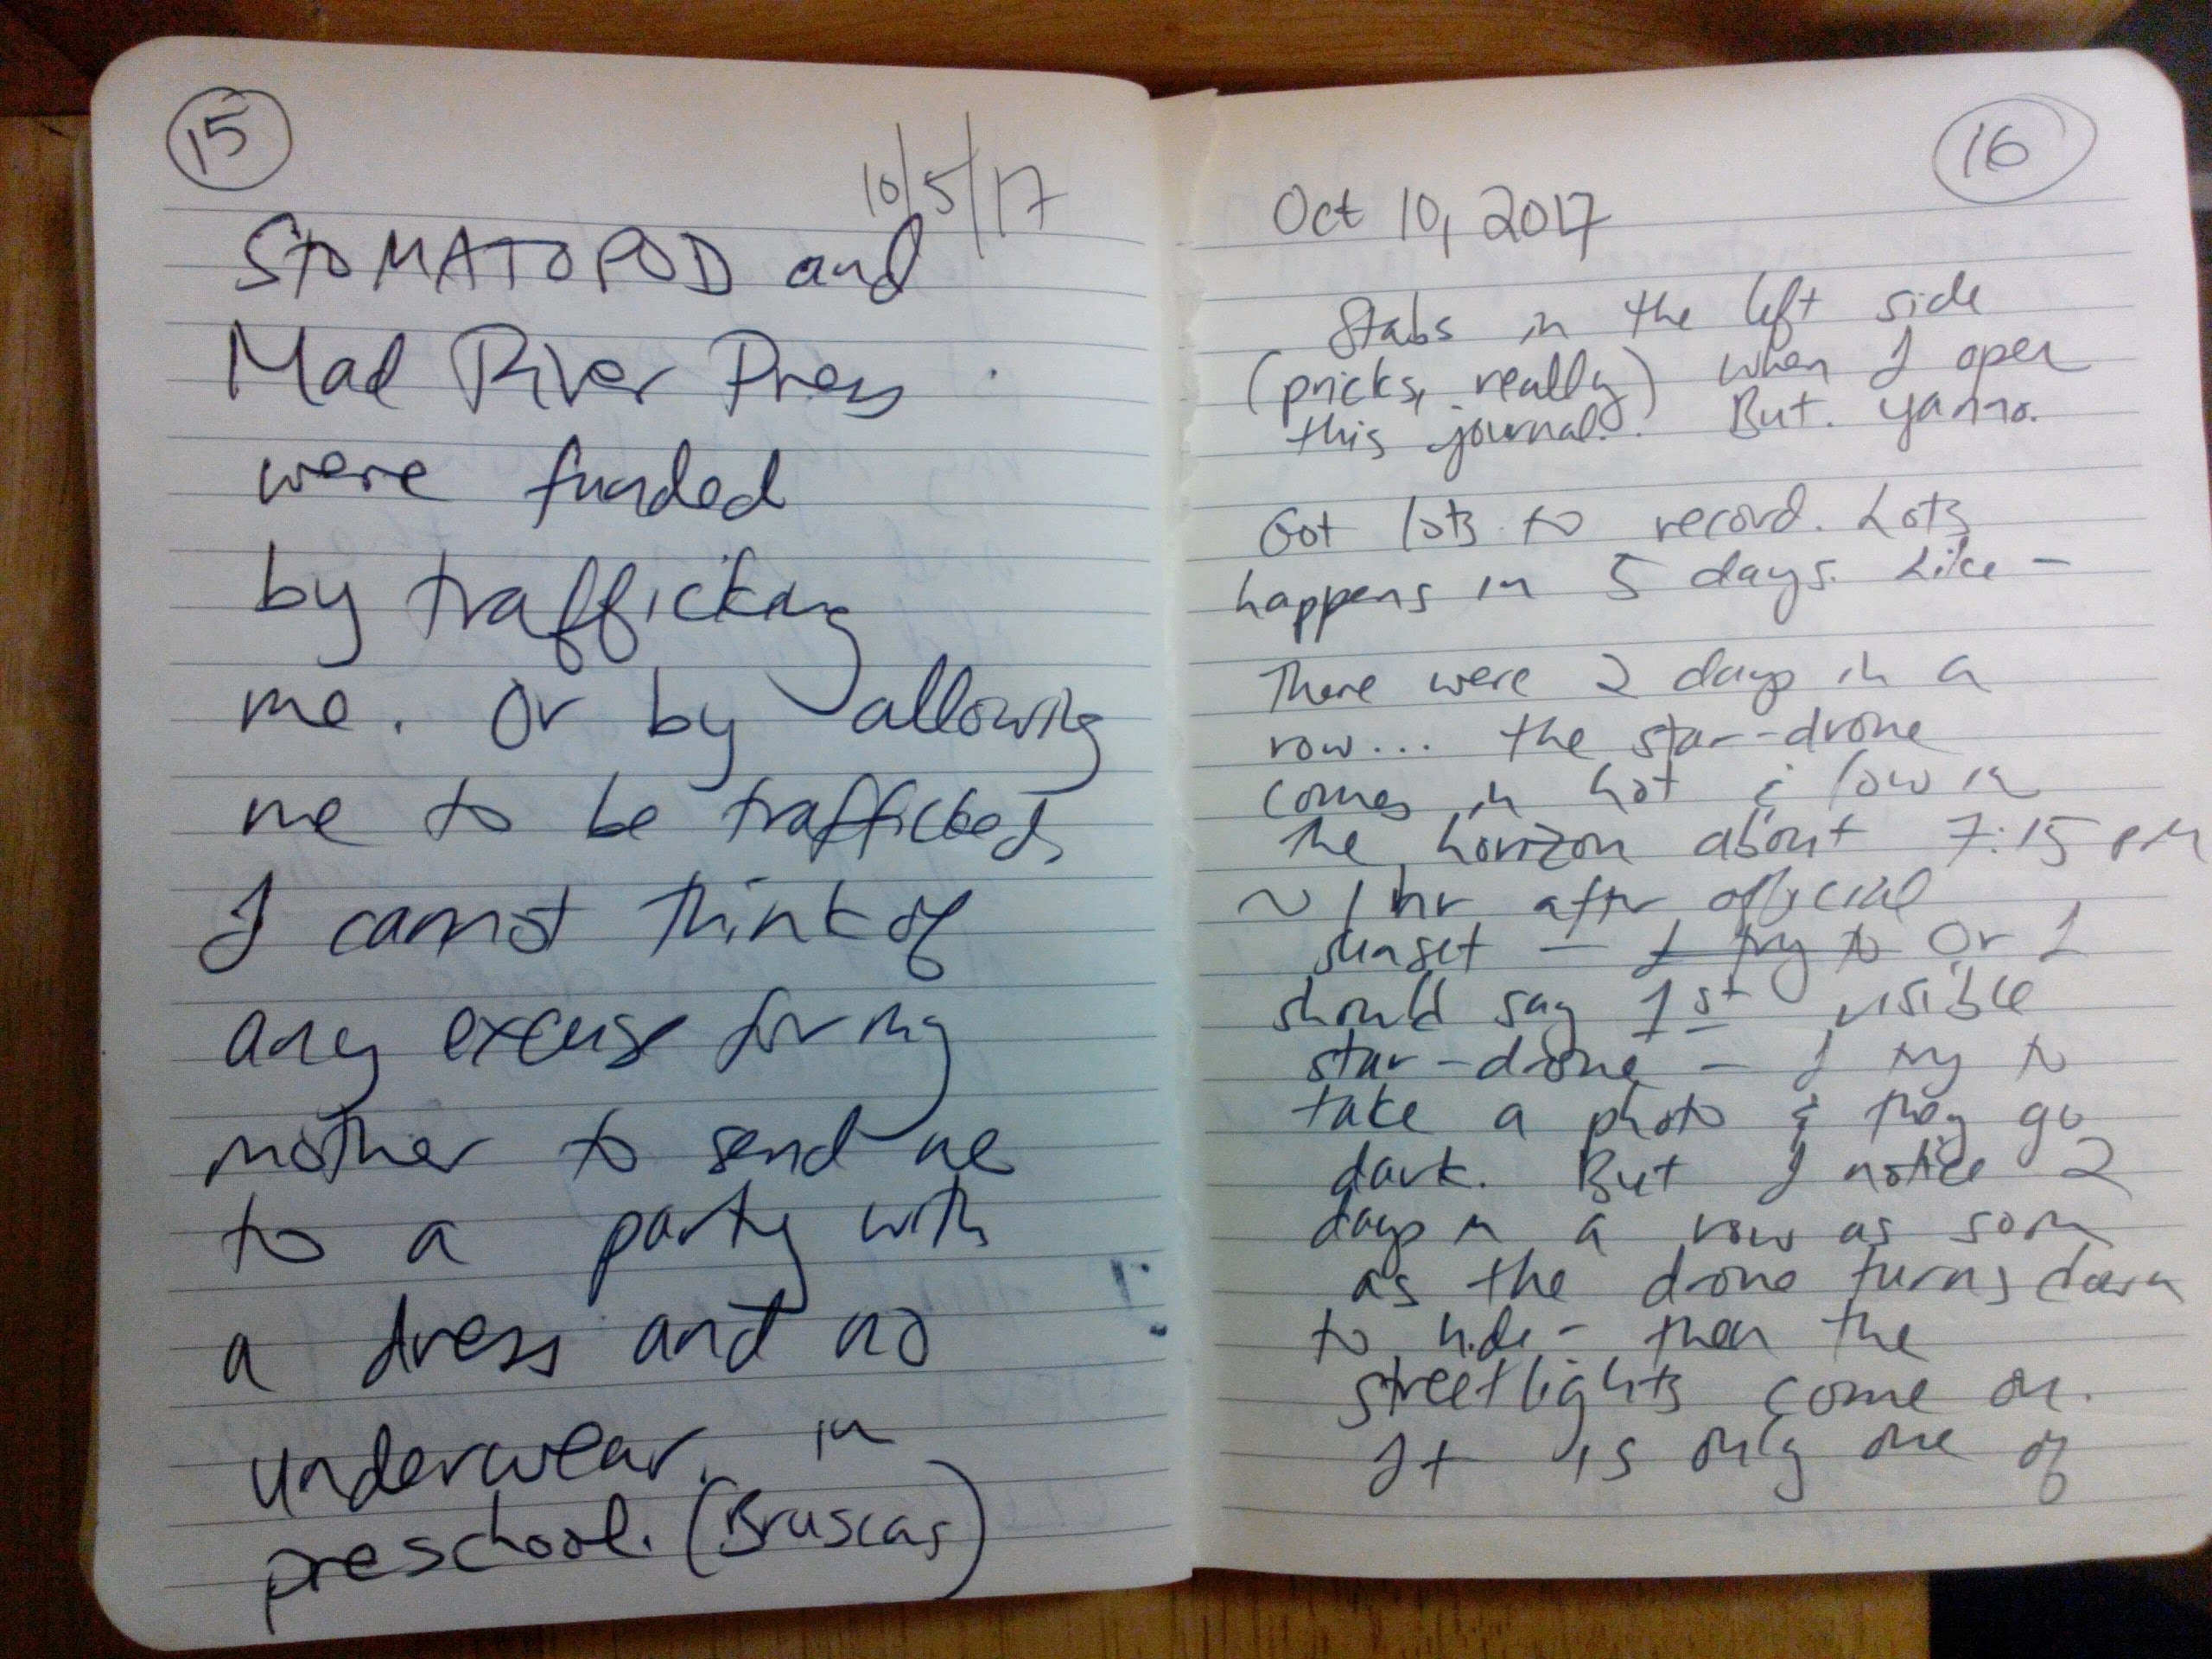 15
10/5/17
STOMATOPOD and
Mad River Press
were funded
by trafficking
me. Or by allowing
me to be trafficked,
I cannot think of
any excuse for my
mother to send me
to a party with
a dress and no
underwear in
preschool. (Bruscas)
16
Oct 10, 2017
Stabs in the left side
(pricks, really) when I open
this journal. But. yanno.
Got lots to record. Lots
happens in 5 days. Like -
There were 2 days in a
row... the star-drone
comes in hot & low in
the horizon about 7:15 PM
~ 1 hr after official
sunset — I try to Or I
should say 1st visible
star-drone - I try to
take a photo & they go
dark. But I notice 2
days in a row as soon
as the drone turns down
to hide - then the
streetlights come on.
It is only one of